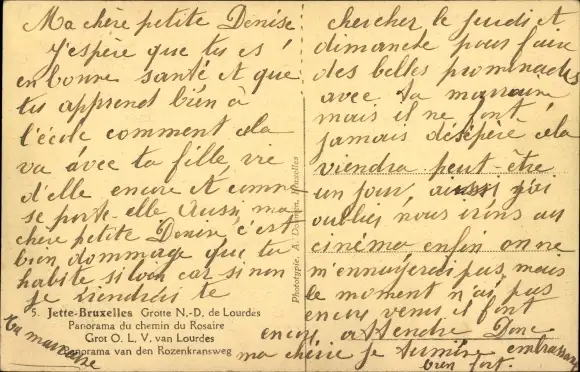 Ma chère petite Denise
J'espère que tu es
en bonne santé et que
tu apprend bien à
l'école comment cela
va avec ta fille, vie
d'elle encore et comme
se porte-elle Aussi, ma
chère petite Denise c'est
bien dommage que tu
habite si loin car si non
je viendrais te
5. Jette-Bruxelles Grotte N.-D. de Lourdes
Panorama du chemin du Rosaire
Grot O. L. V. van Lourdes
Panorama van den Rozenkransweg
Ta marraine
Phototypie. A. Bruxelles
chercher le jeudi et
dimanche pour faire
des belles prominades
avec ta marraine
mais il ne font
jamais désépèré cela
viendra peut-être
un jour, aussi j'ai
oublié, nous irons au
cinéma enfin on ne
m'ennuyerai pas, mais
le moment n'ai pas
encore venu il font
encore attendre Donc
ma chérie je termine embrassant
bien fort.